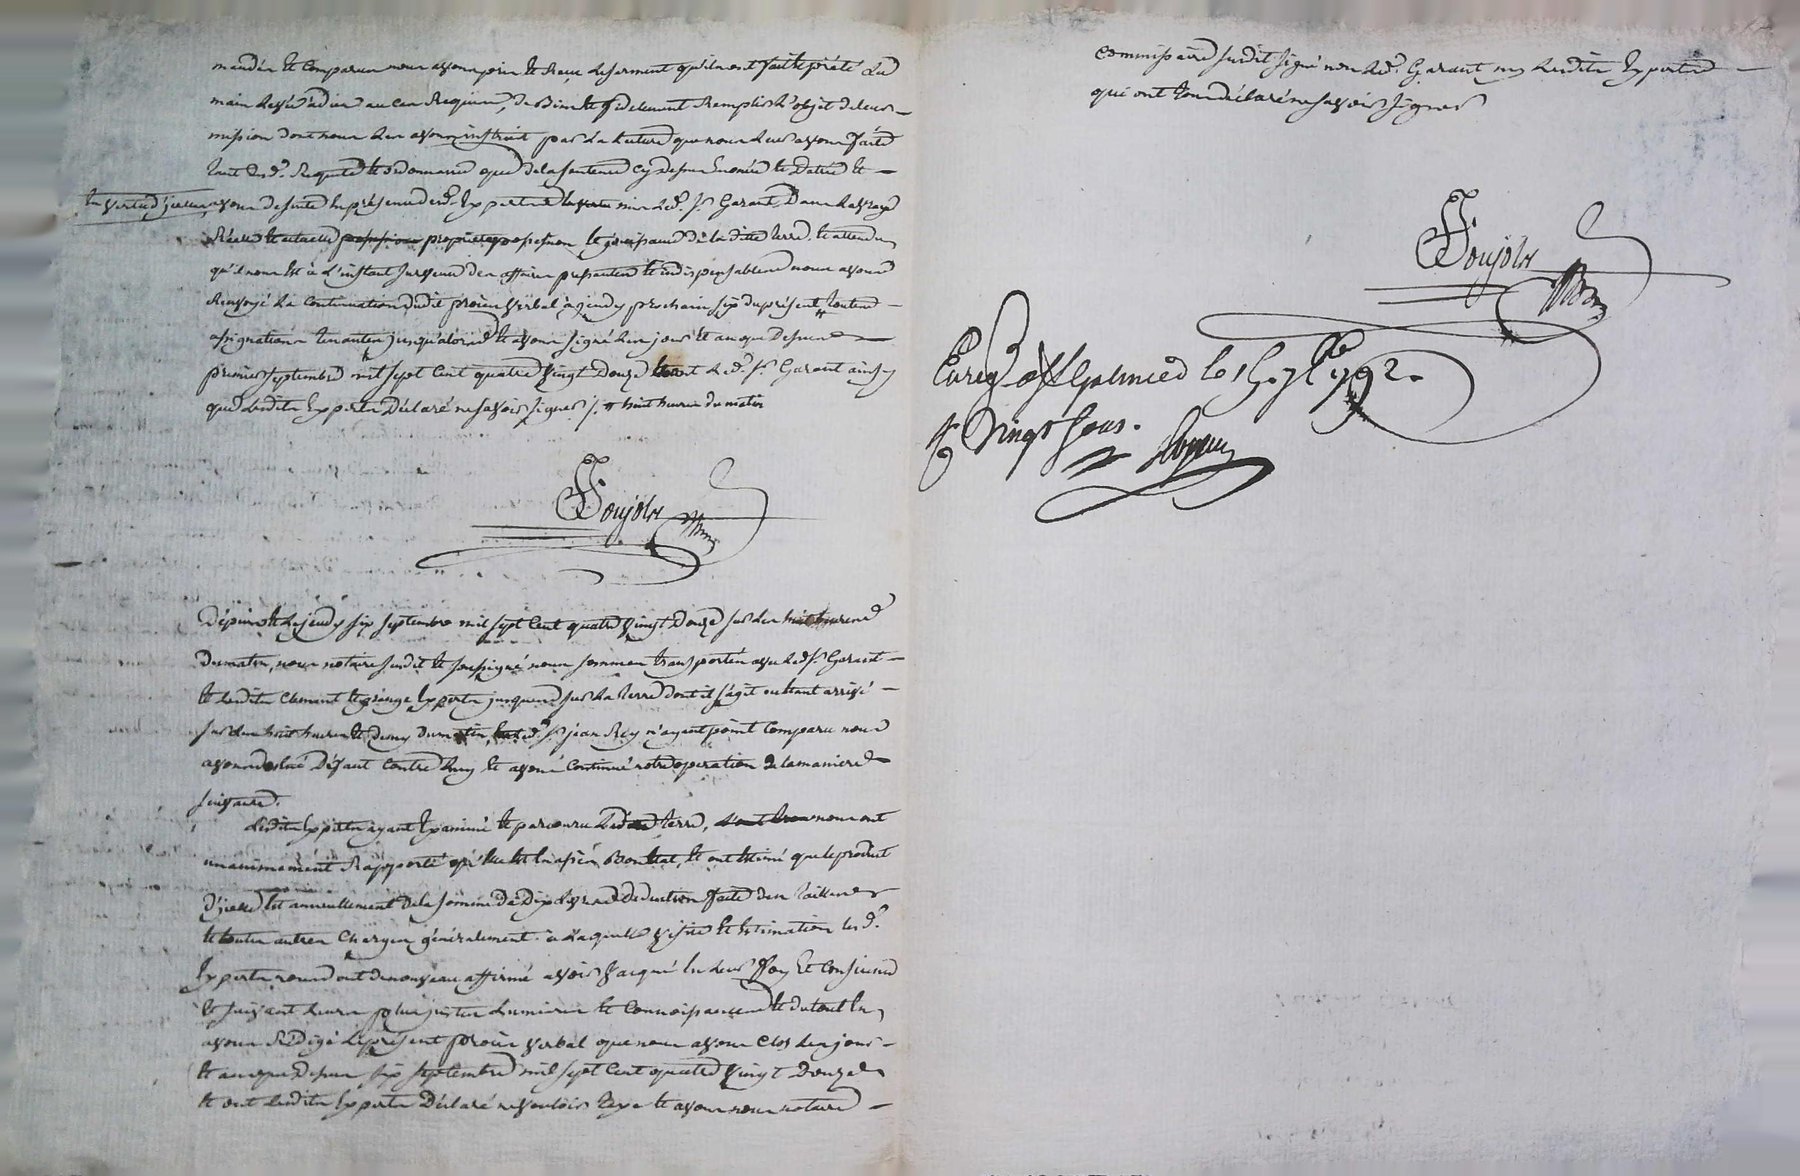 mandés et comparus nous avons pris et Reçu le serment qu'ils ont fait et prêté La
main levée à dieu au cas Requis, de Bien et fidelement Remplir L'objet de leur
mission dont nous les avons instruit par La Lecture que nous Leur avons faite
tant dud. Requete et ordonnance que de la sentence cy dessus enoncée et Datée et
En vertu d'icelles avons de suite En présence desd. Experts mis Led. Sr. Garant Dans La vraye
Réelle et actuelle possession et jouissance de la ditte terre. et attendu
qu'il nous est à l'instant survenu des affaires pressantes et indispensables nous avons
Renvoyé La Continuation dudit procès verbal à jeudy prochain six du présent toutes
assignations tenantes jusqu'alors et avons signé Les jour et an que Dessus
premier septembre mil sept Cent quatre vingt Douze Led. Sr. Garant ainsy
que Lesdits Experts Déclaré ne savoir signer /. huit heures du matin
Soujols
Depuis et Le jeudy six septembre mil sept Cent quatre vingt Douze sur Les huit heures
Du matin, nous notaire susdit et soussigné nous sommes transportés avec Led. Sr. Garant
et Lesdits Clement et Experts jusques sur La terre dont il s'agit ou étant arrivés
sur Les huit heures et demy du matin, Led. Sr. jean Rey n'ayant point Comparu nous
avons Déclaré Défaut Contre Luy et avons Continué notre operation de la maniere
suivante.
Lesdits Experts ayant Examiné et parcouru Ladite terre, nous ont
unanimement Rapporté qu'elle est En assés Bon Etat, et ont Estimé que le produit
D'icelle est annuellement De la somme De Dix Livres Deduction faite des tailles
et toutes autres Charges généralement. à Laquelle visite et Estimation lesd.
Experts nous ont de nouveau affirmé avoir vacqué En Leur Foy Et Conscience
et suivant Leurs plus justes Lumieres et Connoissances et du tout En
avons Rédigé Le présent procès verbal que nous avons Clos Les jour
et an que Dessus six septembre mil sept Cent quatre vingt Douze
et ont Lesdits Experts Déclaré ne vouloir taxe et avons nous notaire
commissaire susdit signé non Led. Garant ny Lesdits Experts
qui ont tous déclaré ne savoir signer
Soujols
Enreg. à le 15. 7bre 1792.
Vingt sous.